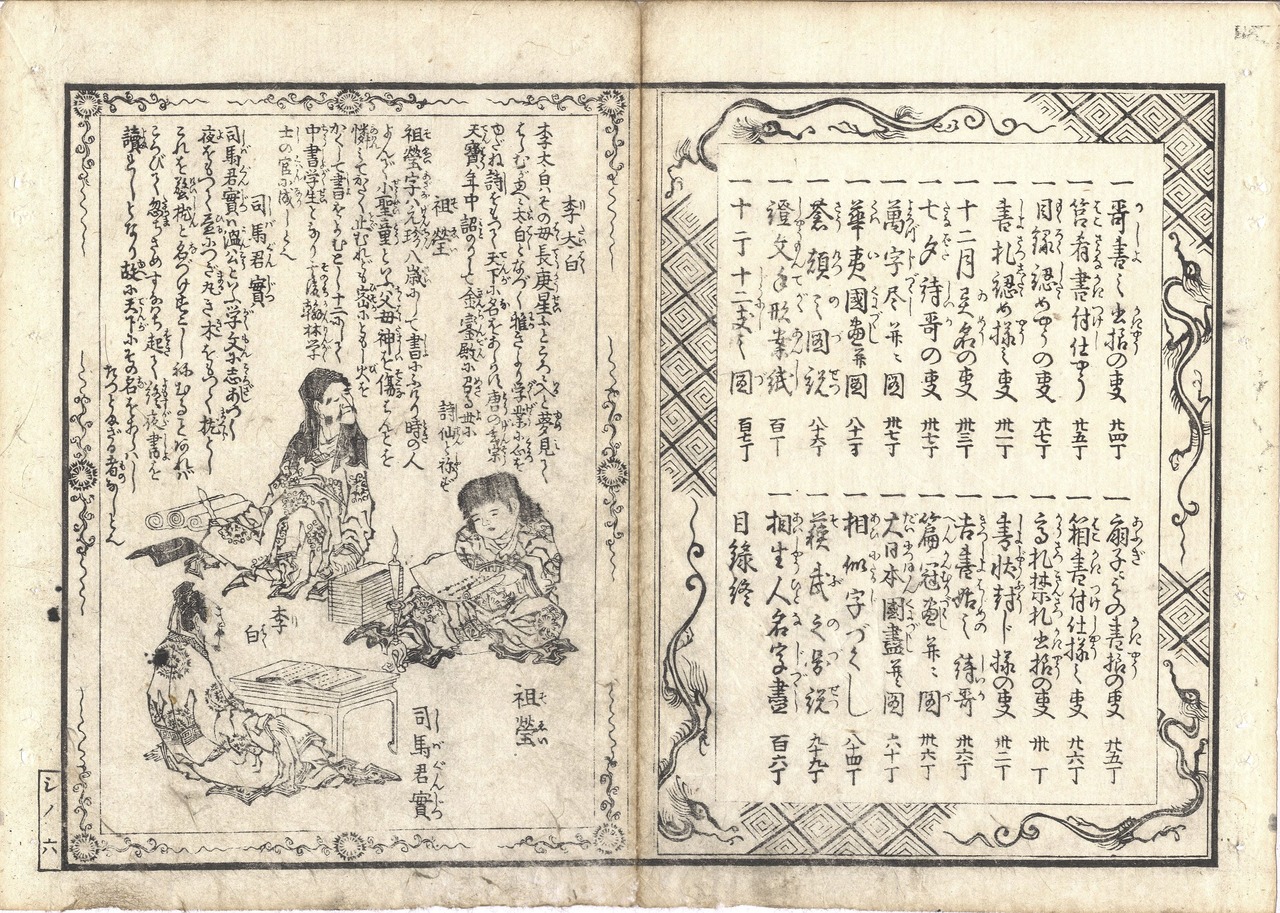 一 哥書之出拵の叓 廿四丁
一 筥肴書付仕やう 廿五丁
一 目録認めやうの叓 廿七丁
一 書札認め様之叓 卅一丁
一 十二月異名の叓 卅三丁
一 七夕詩哥の叓 卅七丁
一 萬字尽并ニ図 卅七丁
一 華夷國盡并圖
一 蒼頡之圖説 八十六丁
一 證文手形案紙 百丁
一 十干十二支之図 百七丁
一 扇子その書拵の叓 廿五丁
一 箱書付仕様之叓 廿六丁
一 高札禁札出拵の叓 卅丁
一 書状封じ様の叓 卅二丁
一 吉書始之詩哥 卅六丁
一 篇冠盡并ニ図 卅六丁
一 大日本國盡并ニ圖 六十丁
一 相似字づくし 八十四丁
一 蘇武之圖説 九十九丁
一 相生人名字盡 百六丁
目録終
李太白
李太白ハその母長庚星ふところへ入と夢見て
はらむ
天寶年中詔のりして金鑾殿に召る世に
詩仙と称も
祖瑩
祖瑩字ハ元珍八歳にして書にふけり時の人
よんで小聖童といふ父母神を傷らんことを
憐ミてかたく止むれども密にともし火を
かくして書をよむとし十二にして
中書学生となり後翰林学
士の官に成しとぞ
司馬君實
司馬君實温公といふ学文に志あつく
夜をもつて益につぎ丸き木をもつて枕とし
これを警枕と名づけすこし祢むることあれバ
ころびて忽ちさめすなはち起て終夜書を
讀しとなり故に天下にその名をあらハし
たつとまざる者なしとぞ
李白
祖瑩
司馬君實
シノ六